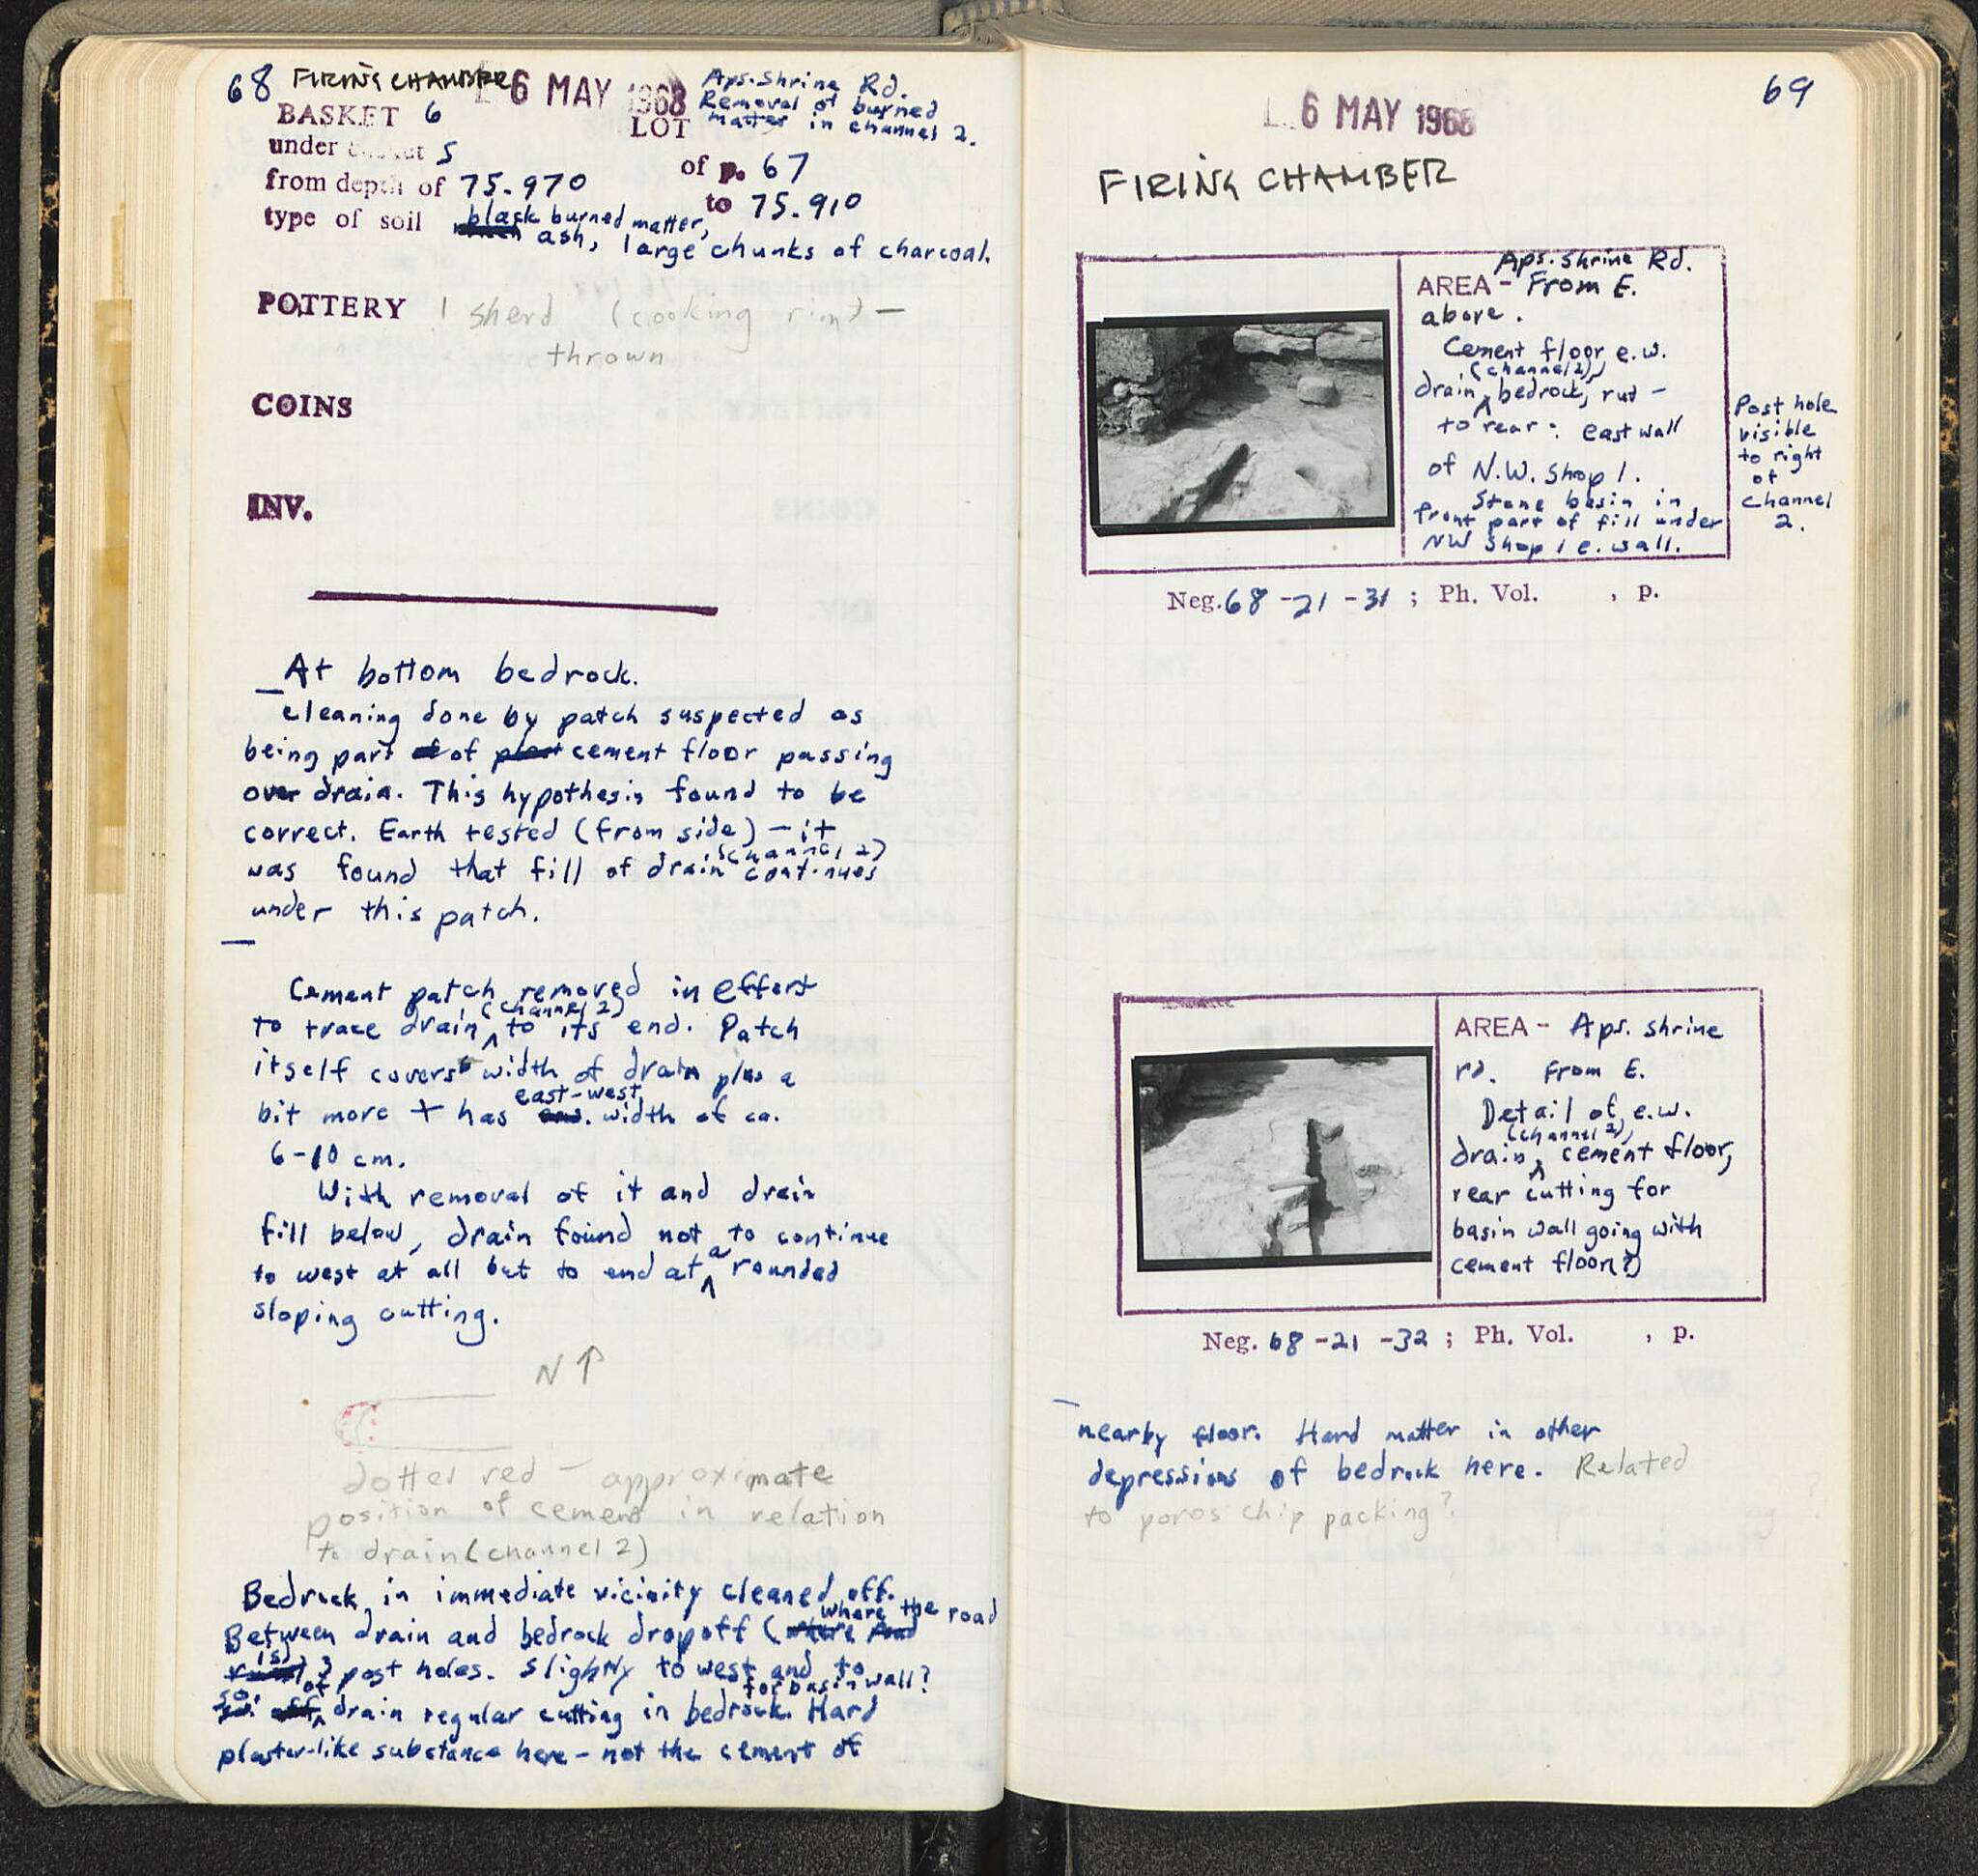 68 FIRING CHAMBER 6 MAY 1968 Aps. Shrine Rd.
Removal of burned
matter in channel 2.
BASKET 6 LOT
under basket 5 of p. 67
from depth of 75.970 to 75.910
type of soil black burned matter,
ash, large chunks of charcoal.
POTTERY 1 sherd (cooking rim) —
thrown
COINS
INV.
At bottom bedrock.
Cleaning done by patch suspected as
being part of cement floor passing
over drain. This hypothesis found to be
correct. Earth tested (from side) — it
was found that fill of drain (channel 2) continues
under this patch.
Cement patch removed in effort
to trace drain (channel 2) to its end. Patch
itself covers width of drain plus a
bit more + has east-west width of ca.
6-10 cm.
With removal of it and drain
fill below, drain found not to continue
to west at all but to end at a rounded
sloping cutting.
N ↑
dotted red — approximate
position of cement in relation
to drain (channel 2)
Bedrock in immediate vicinity cleaned off.
Between drain and bedrock dropoff (where the road
is) 3 post holes. Slightly to west and to
so. of drain regular cutting in bedrock for basin wall? Hard
plaster-like substance here — not the cement of
69
6 MAY 1968
FIRING CHAMBER
Aps. Shrine Rd.
AREA - From E.
above.
Cement floor, e.w.
drain (channel 2), bedrock, rut —
to rear: east wall
of N.W. Shop 1.
Stone basin in
front part of fill under
NW Shop 1 e. wall.
Post hole
visible
to right
of
channel
2.
Neg. 68-21-31; Ph. Vol. , p.
AREA - Aps. shrine
rd. From E.
Detail of e.w.
drain (channel 2), cement floor,
rear cutting for
basin wall going with
cement floor?)
Neg. 68-21-32; Ph. Vol. , p.
nearby floor. Hard matter in other
depressions of bedrock here. Related
to poros chip packing?